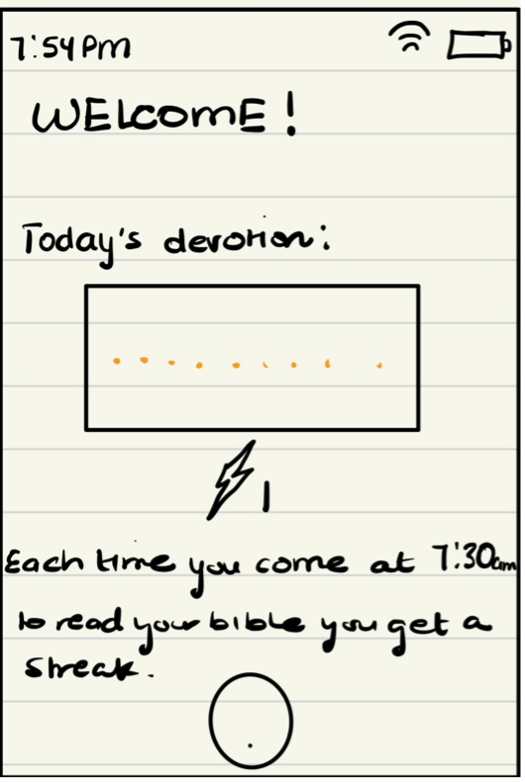 7:54 Pm
WELcomE!
Today's devotion:
1
Each time you come at 7:30am
to read your bible you get a
Streak.